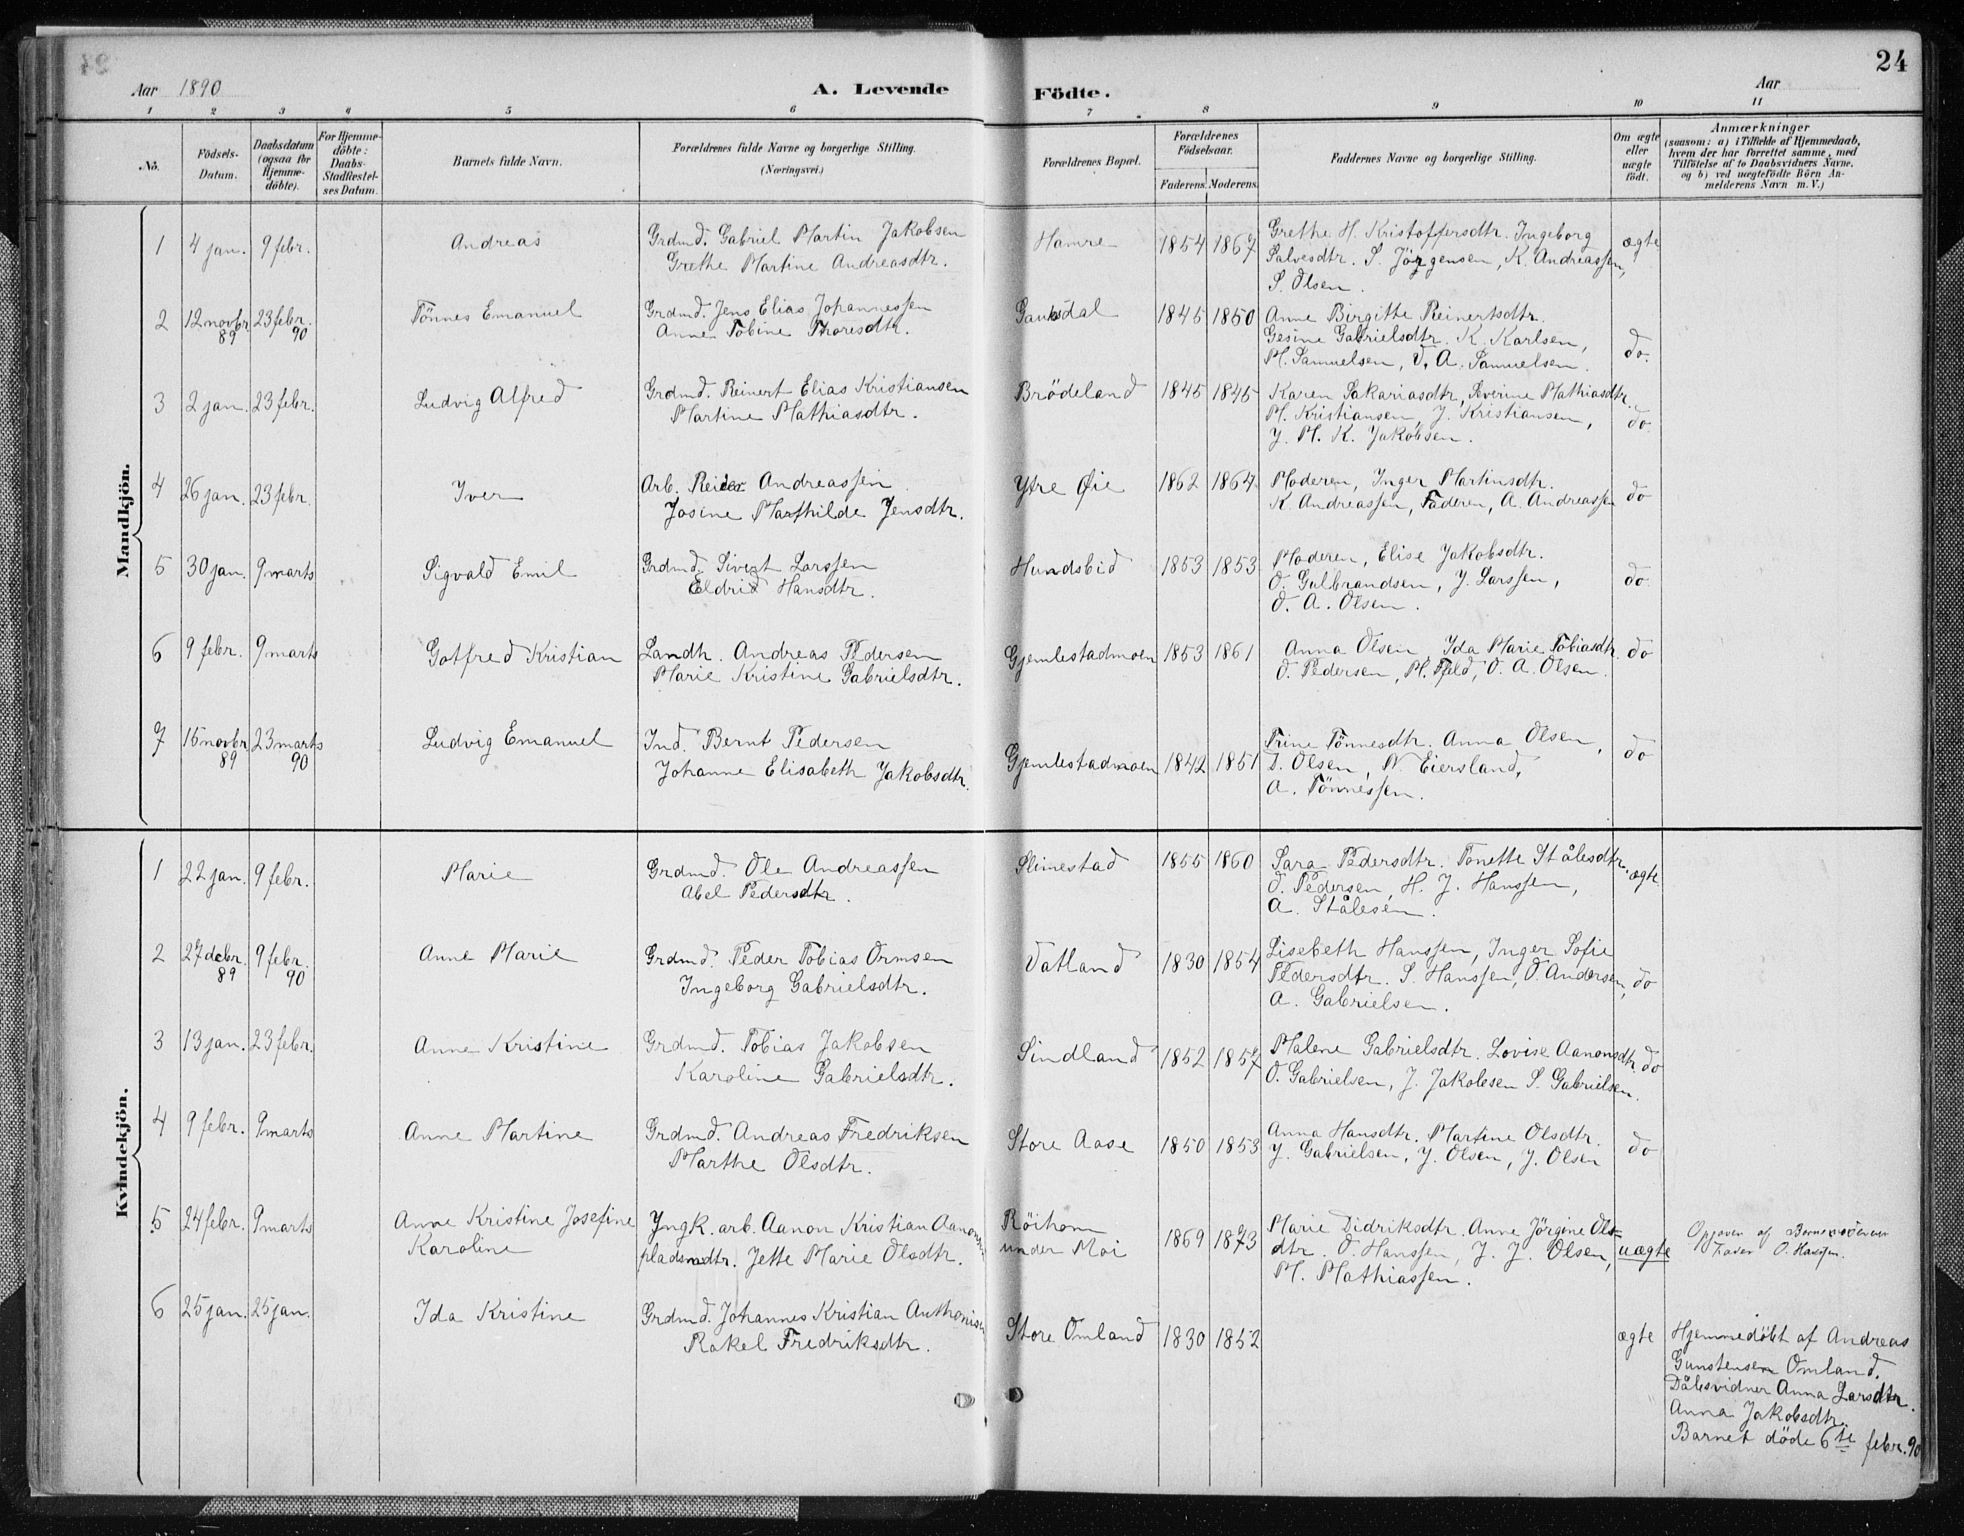 24
Aar 1890
A. Levende Födte.
Aar
1 2 3 4 5 6 7 8 9 10 11
No.
Födsels-Datum.
Daabsdatum (ogsaa for Hjemme-döbte).
For Hjemme-döbte: Daabs-Stadfæstel-ses Datum.
Barnets fulde Navn.
Forældrenes fulde Navne og borgerlige Stilling.
(Næringsvei.)
Forældrenes Bopæl.
Forældrenes Födselsaar.
Faderens. Moderens.
Faddernes Navne og borgerlige Stilling.
Om ægte eller uægte födt.
Anmærkninger
(saasom: a) i Tilfælde af Hjemmedaab,
hvem der har forrettet samme, med
Tilföielse af to Daabsvidners Navne,
og b) ved uægtefödte Börn An-
melderens Navn m. V.)
Mandkjön.
1 4 jan. 9 febr. Andreas Grdmd. Gabriel Martin Jakobsen Hamre 1854 1867 Grethe H. Kristoffersdtr. Ingeborg ægte
Grethe Martine Andreasdtr. Salvesdtr. S. Jörgensen, K. Andreassen,
S. Olsen.
2 12 novbr. 89 23 febr. 90 Tönnes Emanuel Grdmd. Jens Elias Johannessen Gauksdal 1845 1850 Anne Birgitte Reinertsdtr.
Anne Tobine Thoresdtr. Gesine Gabrielsdtr. K. Karlsen, do.
M. Samuelsen, A. Samuelsen.
3 2 jan. 23 febr. Ludvig Alfred Grdmd. Reinert Elias Kristiansen Brödeland 1845 1845 Karen Sakariasdtr, Severine Mathiasdtr.
Martine Mathiasdtr. M. Kristiansen, J. Kristiansen, do.
J. M. K. Jakobsen.
4 26 jan. 23 febr. Iver Arb. Andreassen Ytre Øie 1862 1864 Moderen, Inger Martinsdtr. do
Josine Marthilde Jensdtr. K. Andreassen, Faderen, A. Andreassen
5 30 jan. 9 marts Sigvald Emil Grdmd. Sivert Larssen Hundsbid 1853 1853 Moderen, Elise Jakobsdtr.
Eldrid Hansdtr. O. Gulbrandsen, J. Larssen, do.
O. A. Olsen.
6 9 febr. 9 marts Gotfred Kristian Landh. Andreas Pedersen Gjemlestadmoen 1853 1861 Anna Olsen, Ida Marie Tobiasdtr. do
Marie Kristine Gabrielsdtr. O. Pedersen, M. O. A. Olsen.
7 16 novbr. 89 23 marts 90 Ludvig Emanuel Ind. Bernt Pedersen Gjemlestadmoen 1842 1851 Trine Tönnesdtr. Anna Olsen, do
Johanne Elisabeth Jakobsdtr. T. Olsen, N. Eiersland,
A. Tönnessen.
Kvindekjön.
1 22 jan. 9 febr. Marie Grdmd. Ole Andreassen Slimestad 1855 1860 Sara Pedersdtr. Tonette Stålesdtr. ægte
Abel Pedersdtr. O. Pedersen, H. J. Hanssen,
A. Stålesen.
2 27 debr. 89 9 febr. 90 Anne Marie Grdmd. Peder Tobias Ormsen Vatland 1830 1854 Lisebeth Hanssen, Inger Sofie
Ingeborg Gabrielsdtr. Pedersdtr. S. Hanssen, O. Andersen, do
A. Gabrielsen.
3 13 jan. 23 febr. Anne Kristine Grdmd. Tobias Jakobsen Sindland 1852 1857 Malene Gabrielsdtr. Lovise Aanonsdtr. do
Karoline Gabrielsdtr. O. Gabrielsen, J. Jakobsen S. Gabrielsen.
4 9 febr. 9 marts Anne Martine Grdmd. Andreas Fredriksen Store Aase 1850 1853 Anna Hansdtr. Martine Olsdtr. do
Marthe Olsdtr. J. Gabrielsen, J. Olsen, J. Olsen
5 24 febr. 9 marts Anne Kristine Josefine Yngk. arb. Aanon Kristian Aanonsen Röihom 1869 1873 Marie Didriksdtr. Anne Jörgine Ols-
Karoline pladsmdtr. Jette Marie Olsdtr. under Moi dtr. O. Hanssen, J. J. Olsen, uægte
M. Mathiassen.
Opgaven af Barnemoderens
Fader O. Hanssen.
6 25 jan. 25 jan. Ida Kristine Grdmd. Johannes Kristian Anthonisen Store Omland 1830 1852 ægte
Rakel Fredriksdtr.
Hjemmedöbt af Andreas
Gunstensen Omland.
Dåbsvidner Anna Larsdtr.
Anna Jakobsdtr.
Barnet döde 6te febr. 90